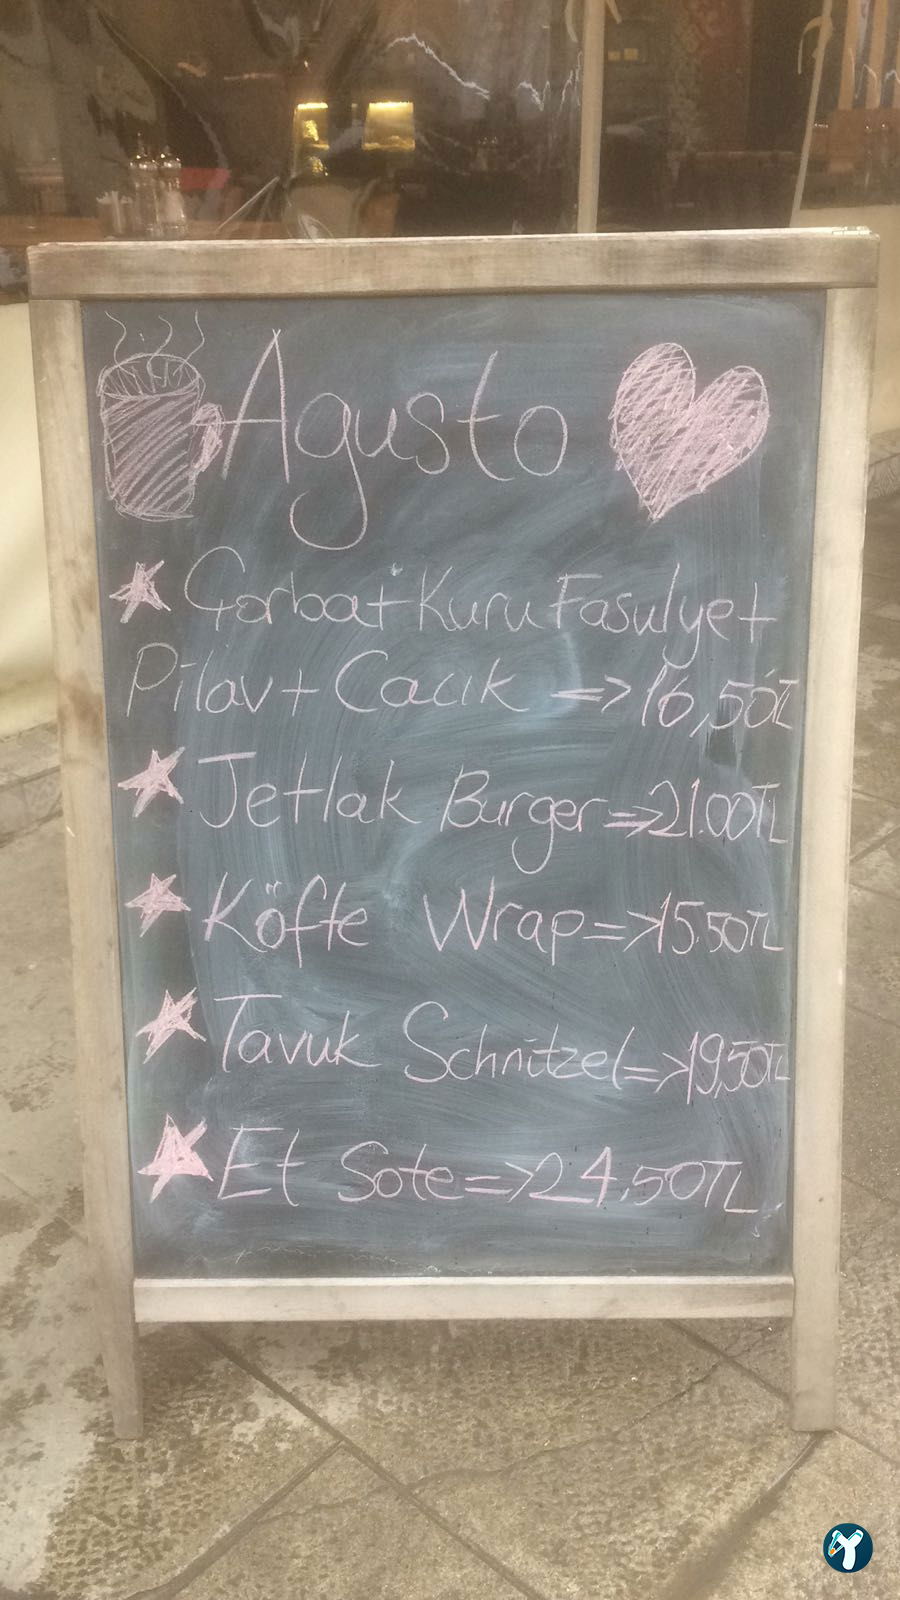 Agusto
Çorba+Kuru Fasulye+
Pilav+Cacık => 16,50TL
Jetlak Burger=>21.00TL
Köfte Wrap=>15.50TL
Tavuk Schnitzel=>19,50TL
Et Sote=>24.50TL